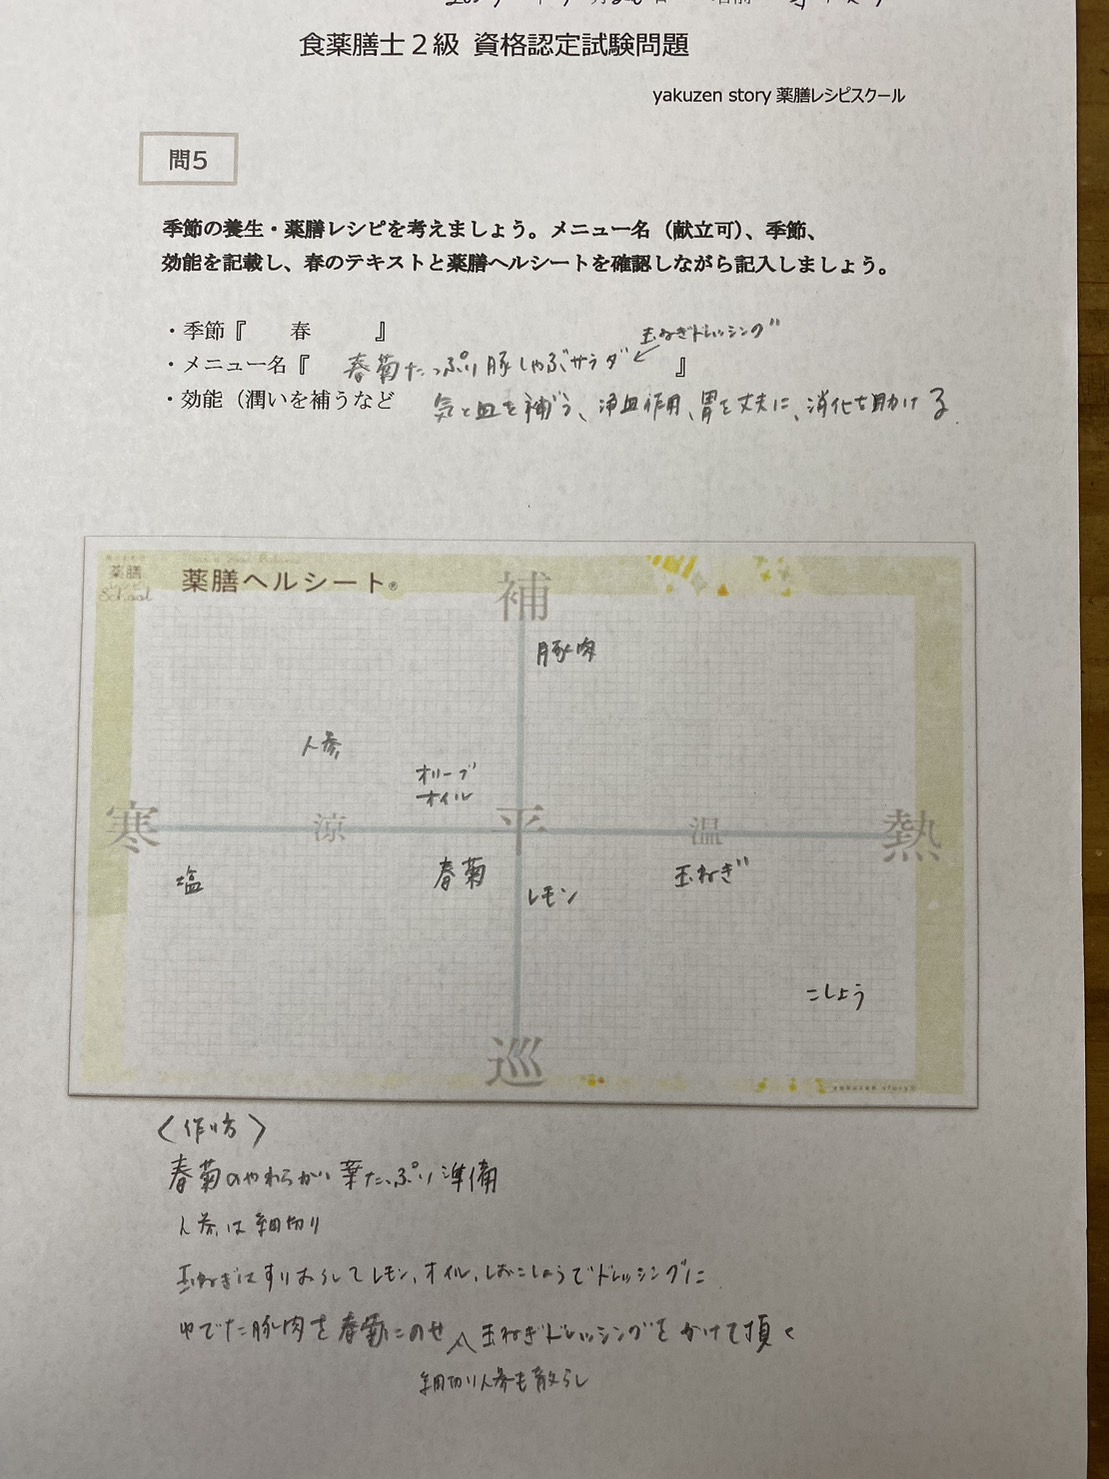 食薬膳士２級 資格認定試験問題
yakuzen story 薬膳レシピスクール
問5
季節の養生・薬膳レシピを考えましょう。メニュー名（献立可）、季節、
効能を記載し、春のテキストと薬膳ヘルシートを確認しながら記入しましょう。
・季節『 春 』
玉ねぎドレッシング
・メニュー名『 春菊たっぷり豚しゃぶサラダ 』
・効能（潤いを補うなど 気と血を補う、浄血作用、胃を丈夫に、消化を助ける
薬膳
School
薬膳ヘルシート®
補
豚肉
人参
オリーブ
オイル
寒 涼 平 温 熱
塩 春菊 レモン 玉ねぎ
こしょう
巡
yakuzen story
〈作り方〉
春菊のやわらかい葉たっぷり準備
人参は細切り
玉ねぎはすりおろしてレモン、オイル、しおこしょうでドレッシングに
ゆでた豚肉を春菊にのせ 玉ねぎドレッシングをかけて頂く
細切り人参も散らし